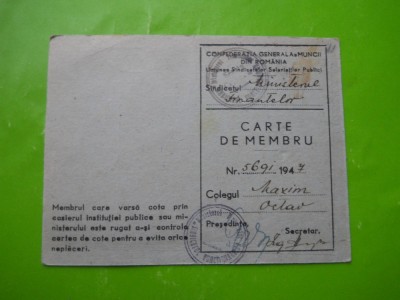 CONFEDERAȚIA GENERALĂ A MUNCII
DIN ROMÂNIA
Uniunea Sindicatelor Salariaților Publici
Sindicatul Ministerul
Finantelor
CARTE
DE MEMBRU
Nr. 5691 1947
Colegul Maxim
Octav
Președinte, Secretar,
Membrul care varsă cota prin
casierul instituției publice sau mi-
nisterului este rugat a-și controla
cartea de cote pentru a evita orice
neplăceri.